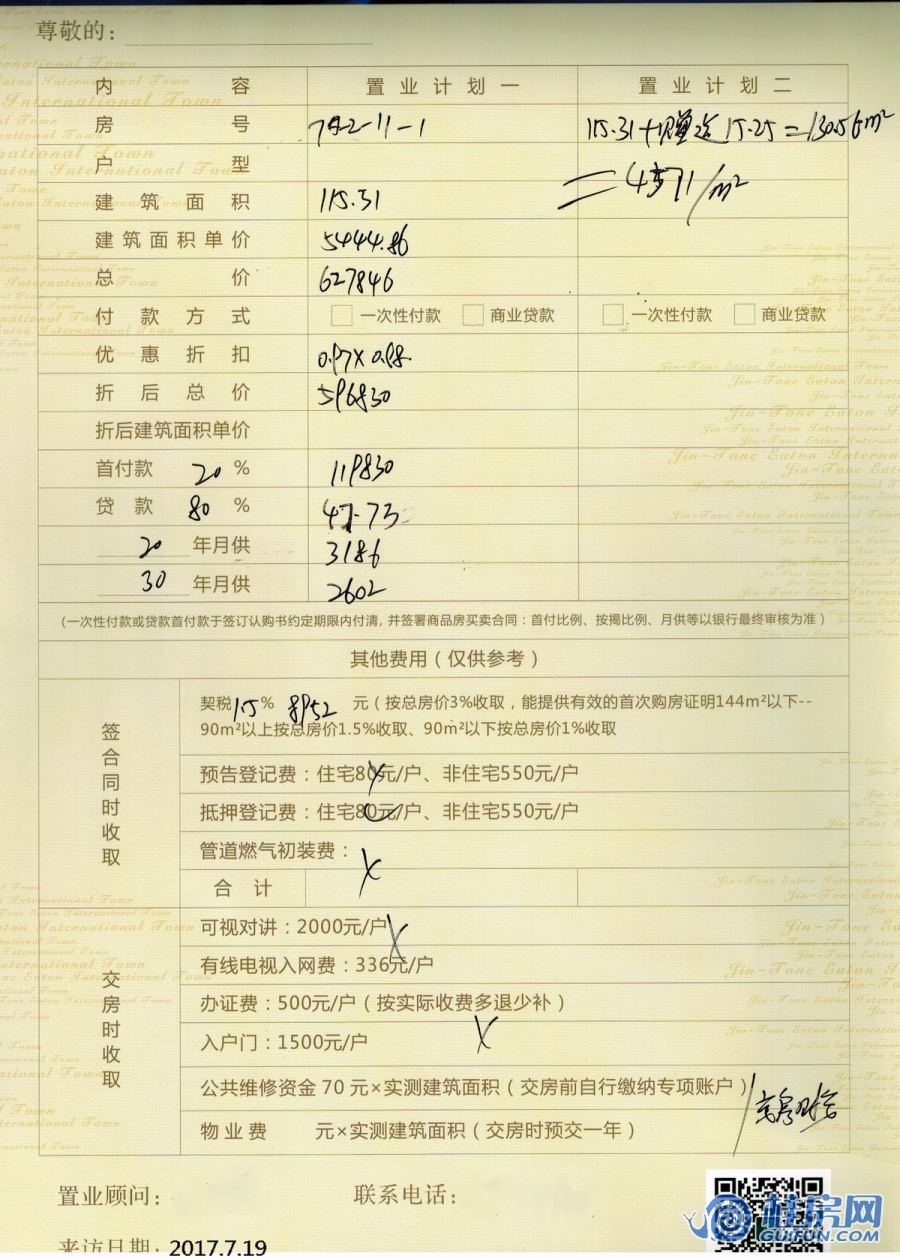 尊敬的：
内容 置业计划一 置业计划二
房号 7#2-11-1 115.31+赠送15.25=130.56m²
户型 =4571/m²
建筑面积 115.31
建筑面积单价 5444.86
总价 627846
付款方式 一次性付款 商业贷款 一次性付款 商业贷款
优惠折扣 0.97×0.98
折后总价 596830
折后建筑面积单价
首付款 20 % 119830
贷款 80 % 47.73
20 年月供 3186
30 年月供 2602
（一次性付款或贷款首付款于签订认购书约定期限内付清，并签署商品房买卖合同：首付比例、按揭比例、月供等以银行最终审核为准）
其他费用（仅供参考）
签合同时收取
契税1.5% 8952 元（按总房价3%收取，能提供有效的首次购房证明144m²以下--
90m²以上按总房价1.5%收取、90m²以下按总房价1%收取
预告登记费：住宅80元/户、非住宅550元/户
抵押登记费：住宅80元/户、非住宅550元/户
管道燃气初装费：
合计
交房时收取
可视对讲：2000元/户
有线电视入网费：336元/户
办证费：500元/户（按实际收费多退少补）
入户门：1500元/户
公共维修资金 70 元×实测建筑面积（交房前自行缴纳专项账户）
交房时交
物业费 元×实测建筑面积（交房时预交一年）
置业顾问： 联系电话：
来访日期：2017.7.19
桂房网
GUIFUN.COM